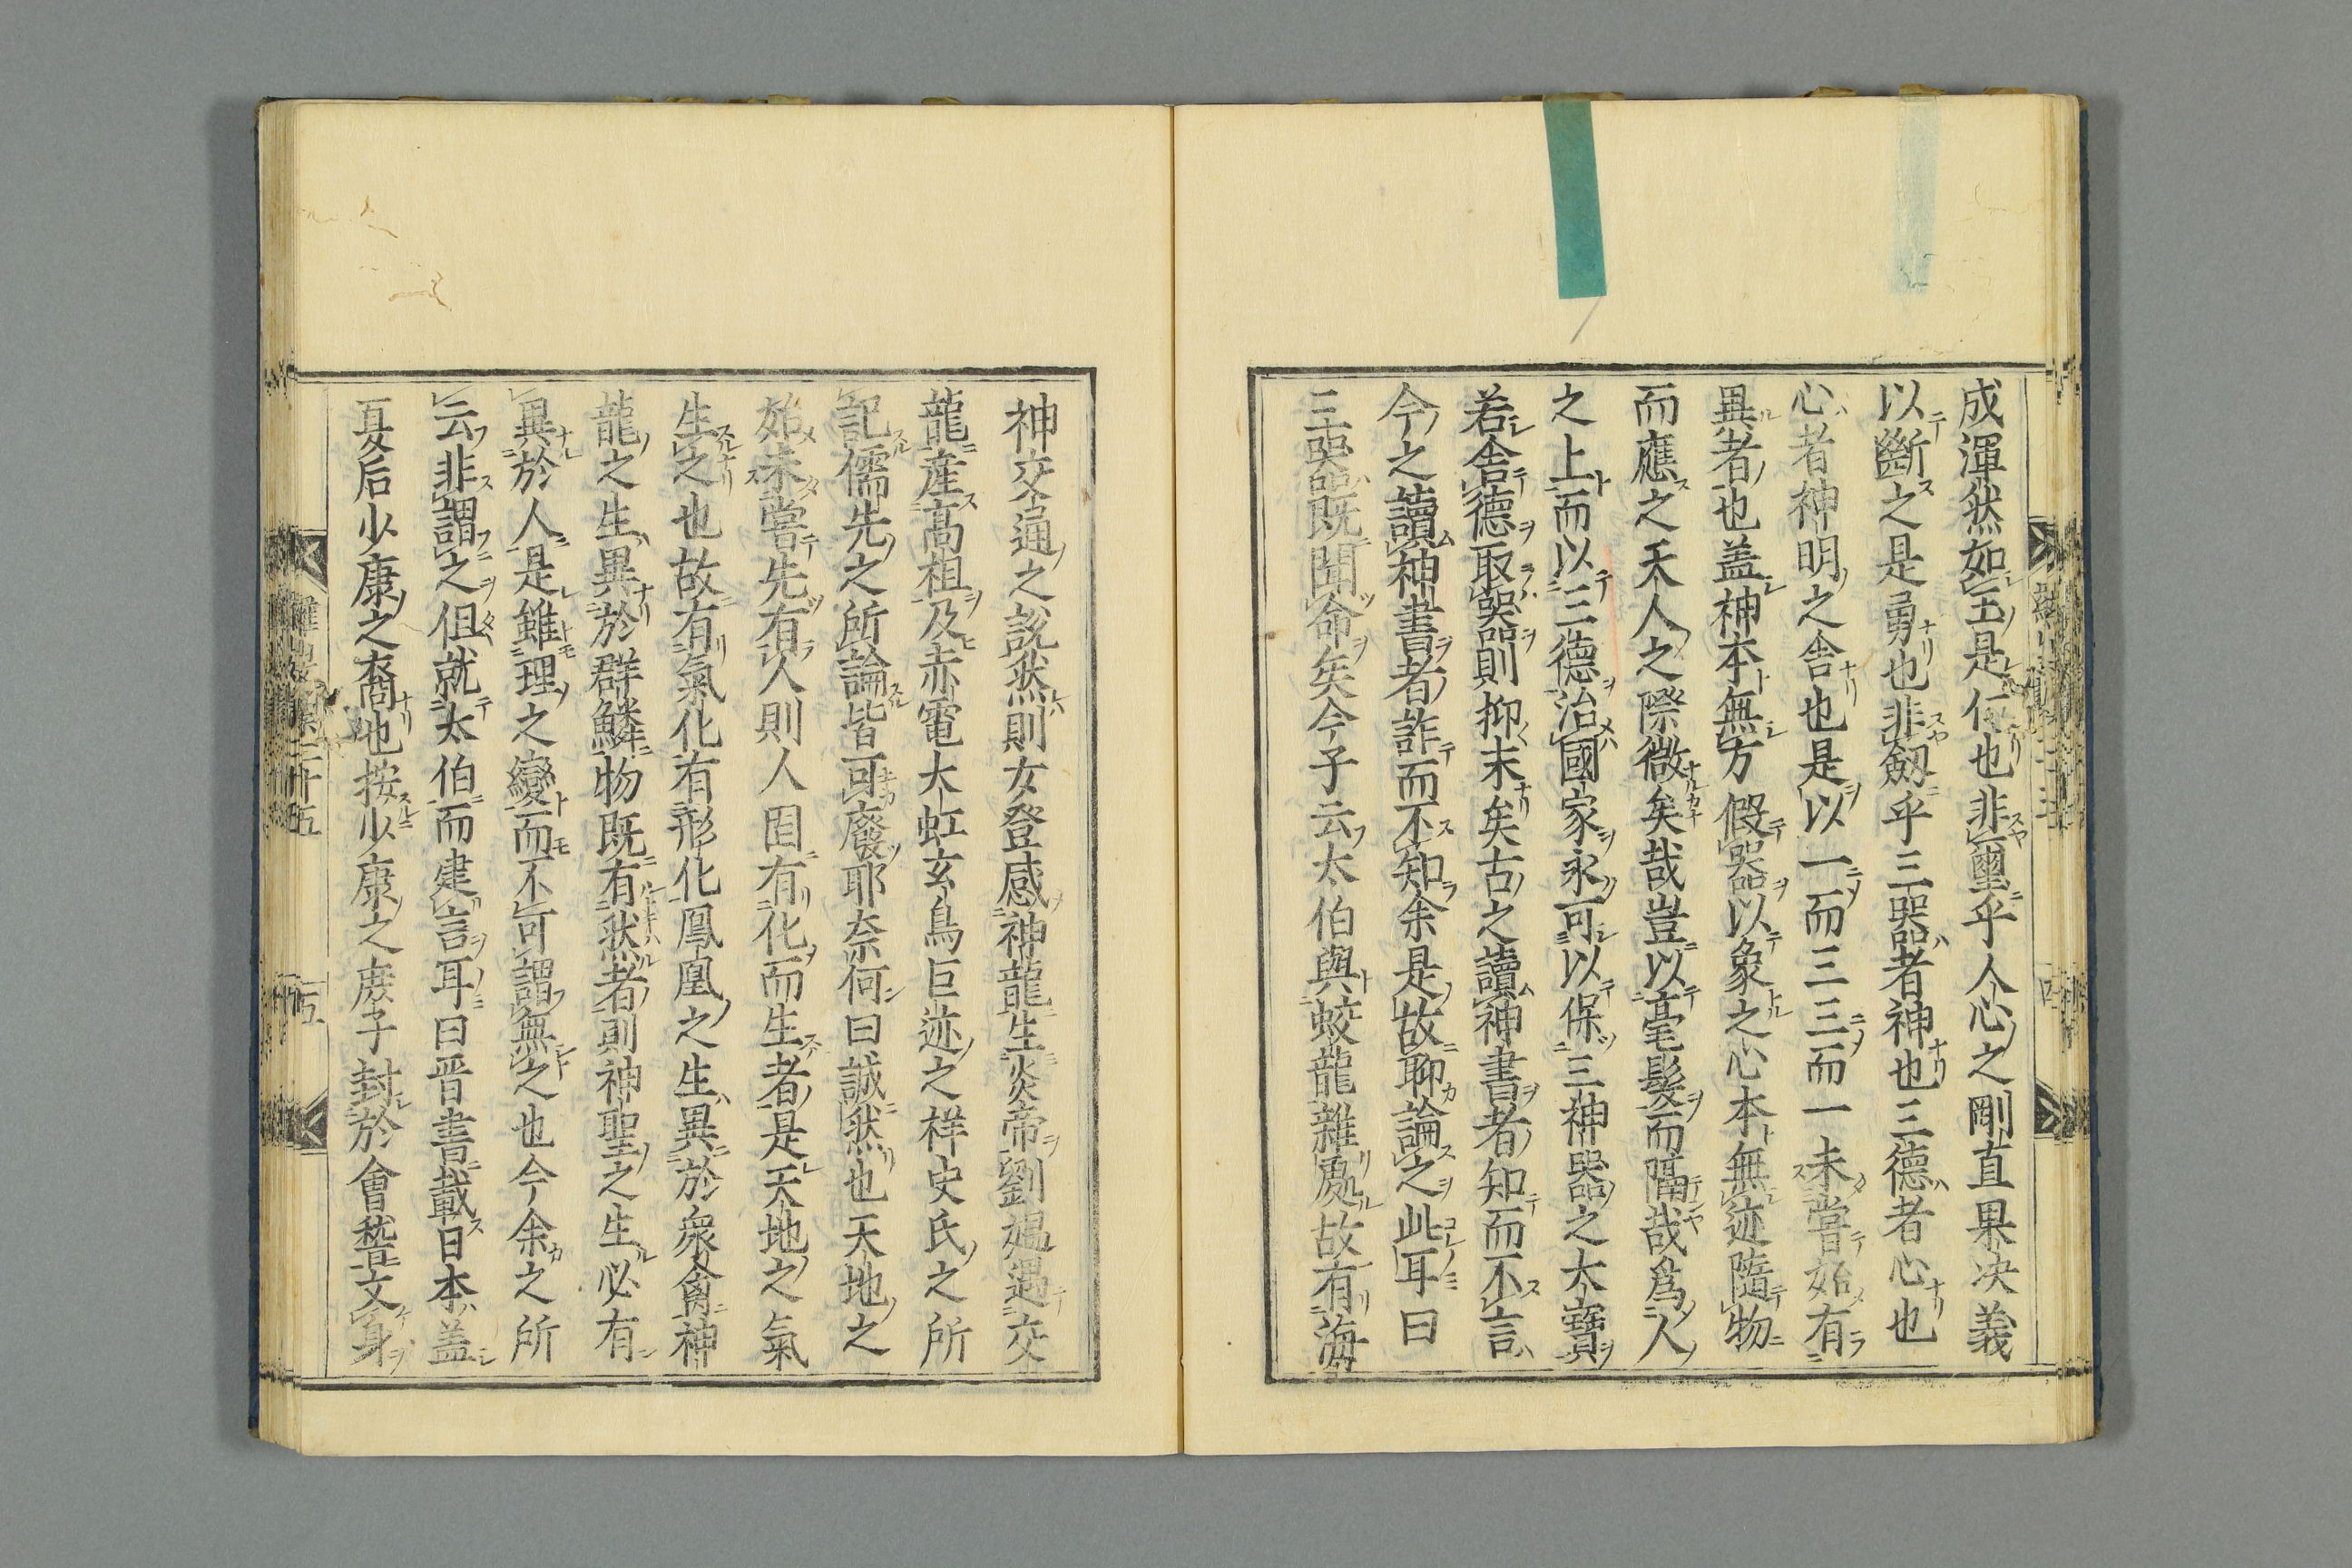 成渾然如玉是仁也非璽乎人心之剛直果决義
以斷之是勇也非劔乎三器者神也三德者心也
心者神明之舎也是以一而三三而一未嘗始有
異者也盖神本無方假器以象之心本無迹隨物
而應之天人之際微矣哉豈以毫髮而隔哉爲人
之上而以三德治國家永可以保三神器之大寶
若舎德取器則抑末矣古之讀神書者知而不言
今之讀神書者詐而不知余是故聊論之此耳曰
三器既聞命矣今子云太伯與蛟龍雜處故有海
神交通之說然則女登感神龍生炎帝劉媼遇交
龍産高祖及赤電大虹玄鳥巨迹之祥史氏之所
記儒先之所論皆可廢耶奈何曰誠然也天地之
始未嘗先有人則人固有化而生者是天地之氣
生之也故有氣化有形化鳳凰之生異於衆禽神
龍之生異於群鱗物既有然者則神聖之生必有
異於人是雖理之變而不可謂無之也今余之所
云非謂之但就太伯而建言耳曰晋書載日本盖
夏后少康之裔也按少康之庻子封於會稽文身
羅山文集二十五
五